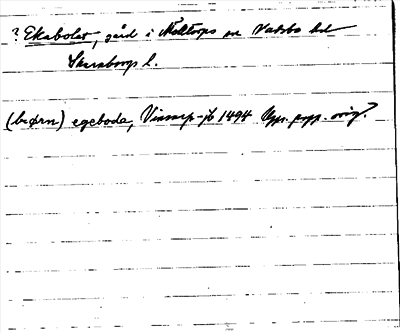 ? Ekabolet, gård i Mölltorps sn Vadsbo hd
Skaraborgs l.
(biørn) egeboda, Vinsarp-jb 1494 Upps. papp. orig.?